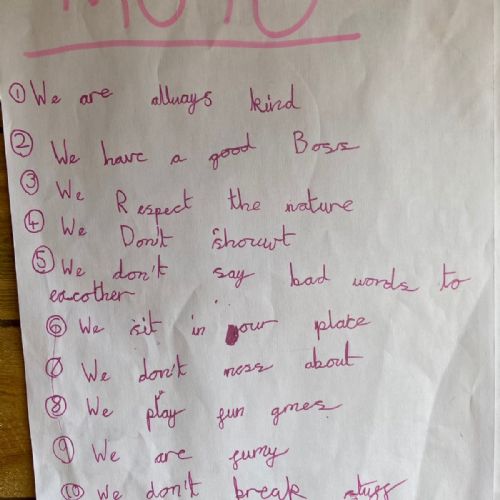 ① We are allways kind
② We have a good Boss
③ We Respect the nature
④ We Don't shouwt
⑤ We don't say bad words to
eacother
⑥ We sit in your place
⑦ We don't mess about
⑧ We play fun gmes
⑨ We are funny
⑩ We don't break stuff